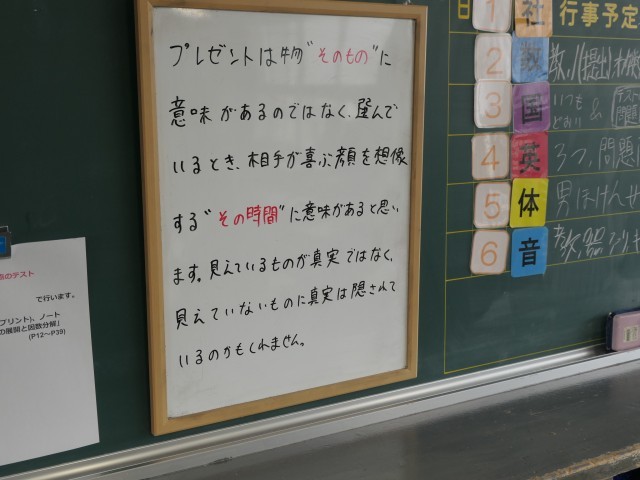 プレゼントは物"そのもの"に
意味があるのではなく、選んで
いるとき、相手が喜ぶ顔を想像
する"その時間"に意味があると思い
ます。見えているものが真実ではなく、
見えていないものに真実は隠されて
いるのかもしれません。
日
行事予定
1 社
2 数
3 国 いつも どおり &
4 英
5 体
6 音
のテスト
で行います。
プリント)、ノート
の展開と因数分解」
(P12～P39)